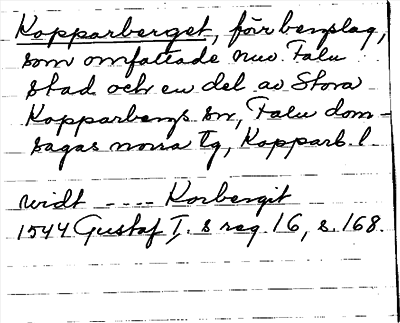 Kopparberget, förr bergslag,
som omfattade nuv. Falu
stad och en del av Stora
Kopparbergs sn, Falu dom-
sagas norra tg, Kopparb. l.
widt ---- Korbergit
1544 Gustaf I. s reg. 16, s. 168.